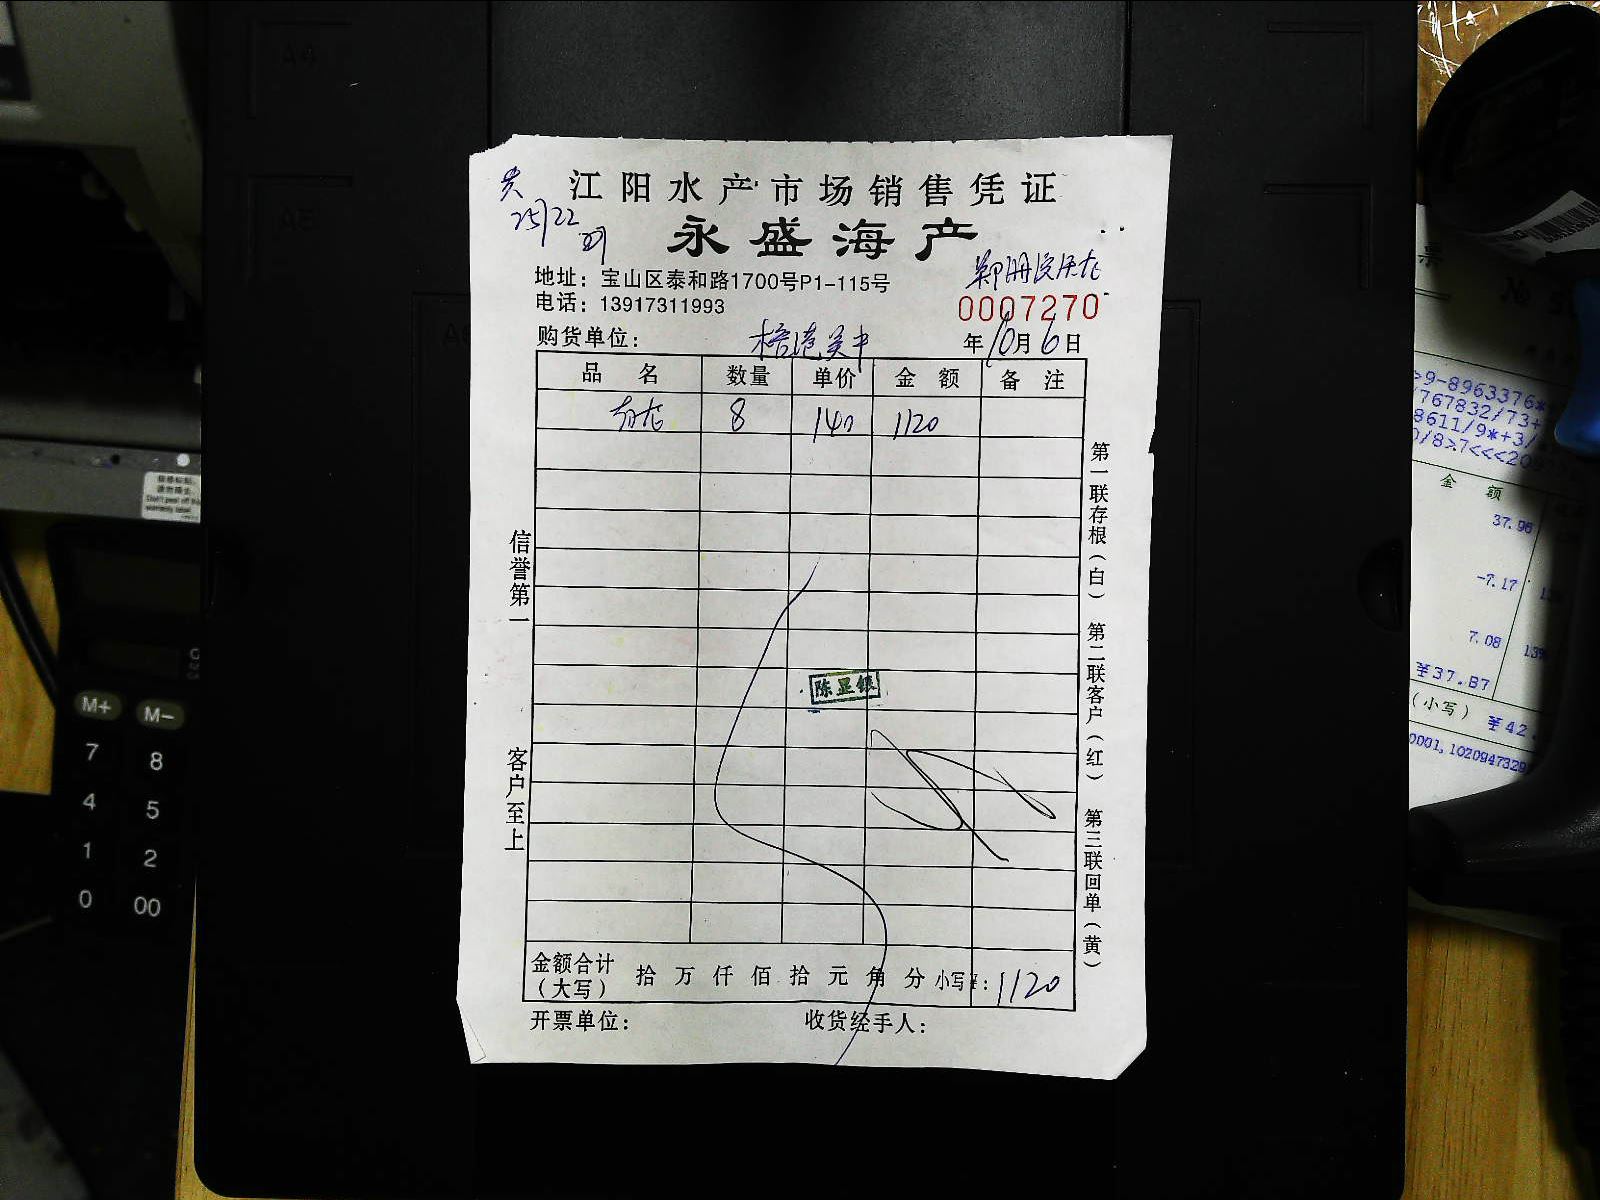 江阳水产市场销售凭证
25/22
永盛海产
地址：宝山区泰和路1700号P1-115号
电话：13917311993
0007270
购货单位：
年10月6日
品 名 数量 单价 金 额 备 注
8 140 1120
信誉第一
客户至上
第一联存根（白） 第二联客户（红） 第三联回单（黄）
陈显银
金额合计（大写） 拾 万 仟 佰 拾 元 角 分 小写¥：1120
开票单位： 收货经手人：
A4
A5
M+ M-
7 8
4 5
1 2
0 00
票
№
>9-8963376*
/767832/73+
8611/9*+3/
0/8>7<<<20
金 额
37.96
-7.17
7.08
¥37.87
（小写） ¥42.